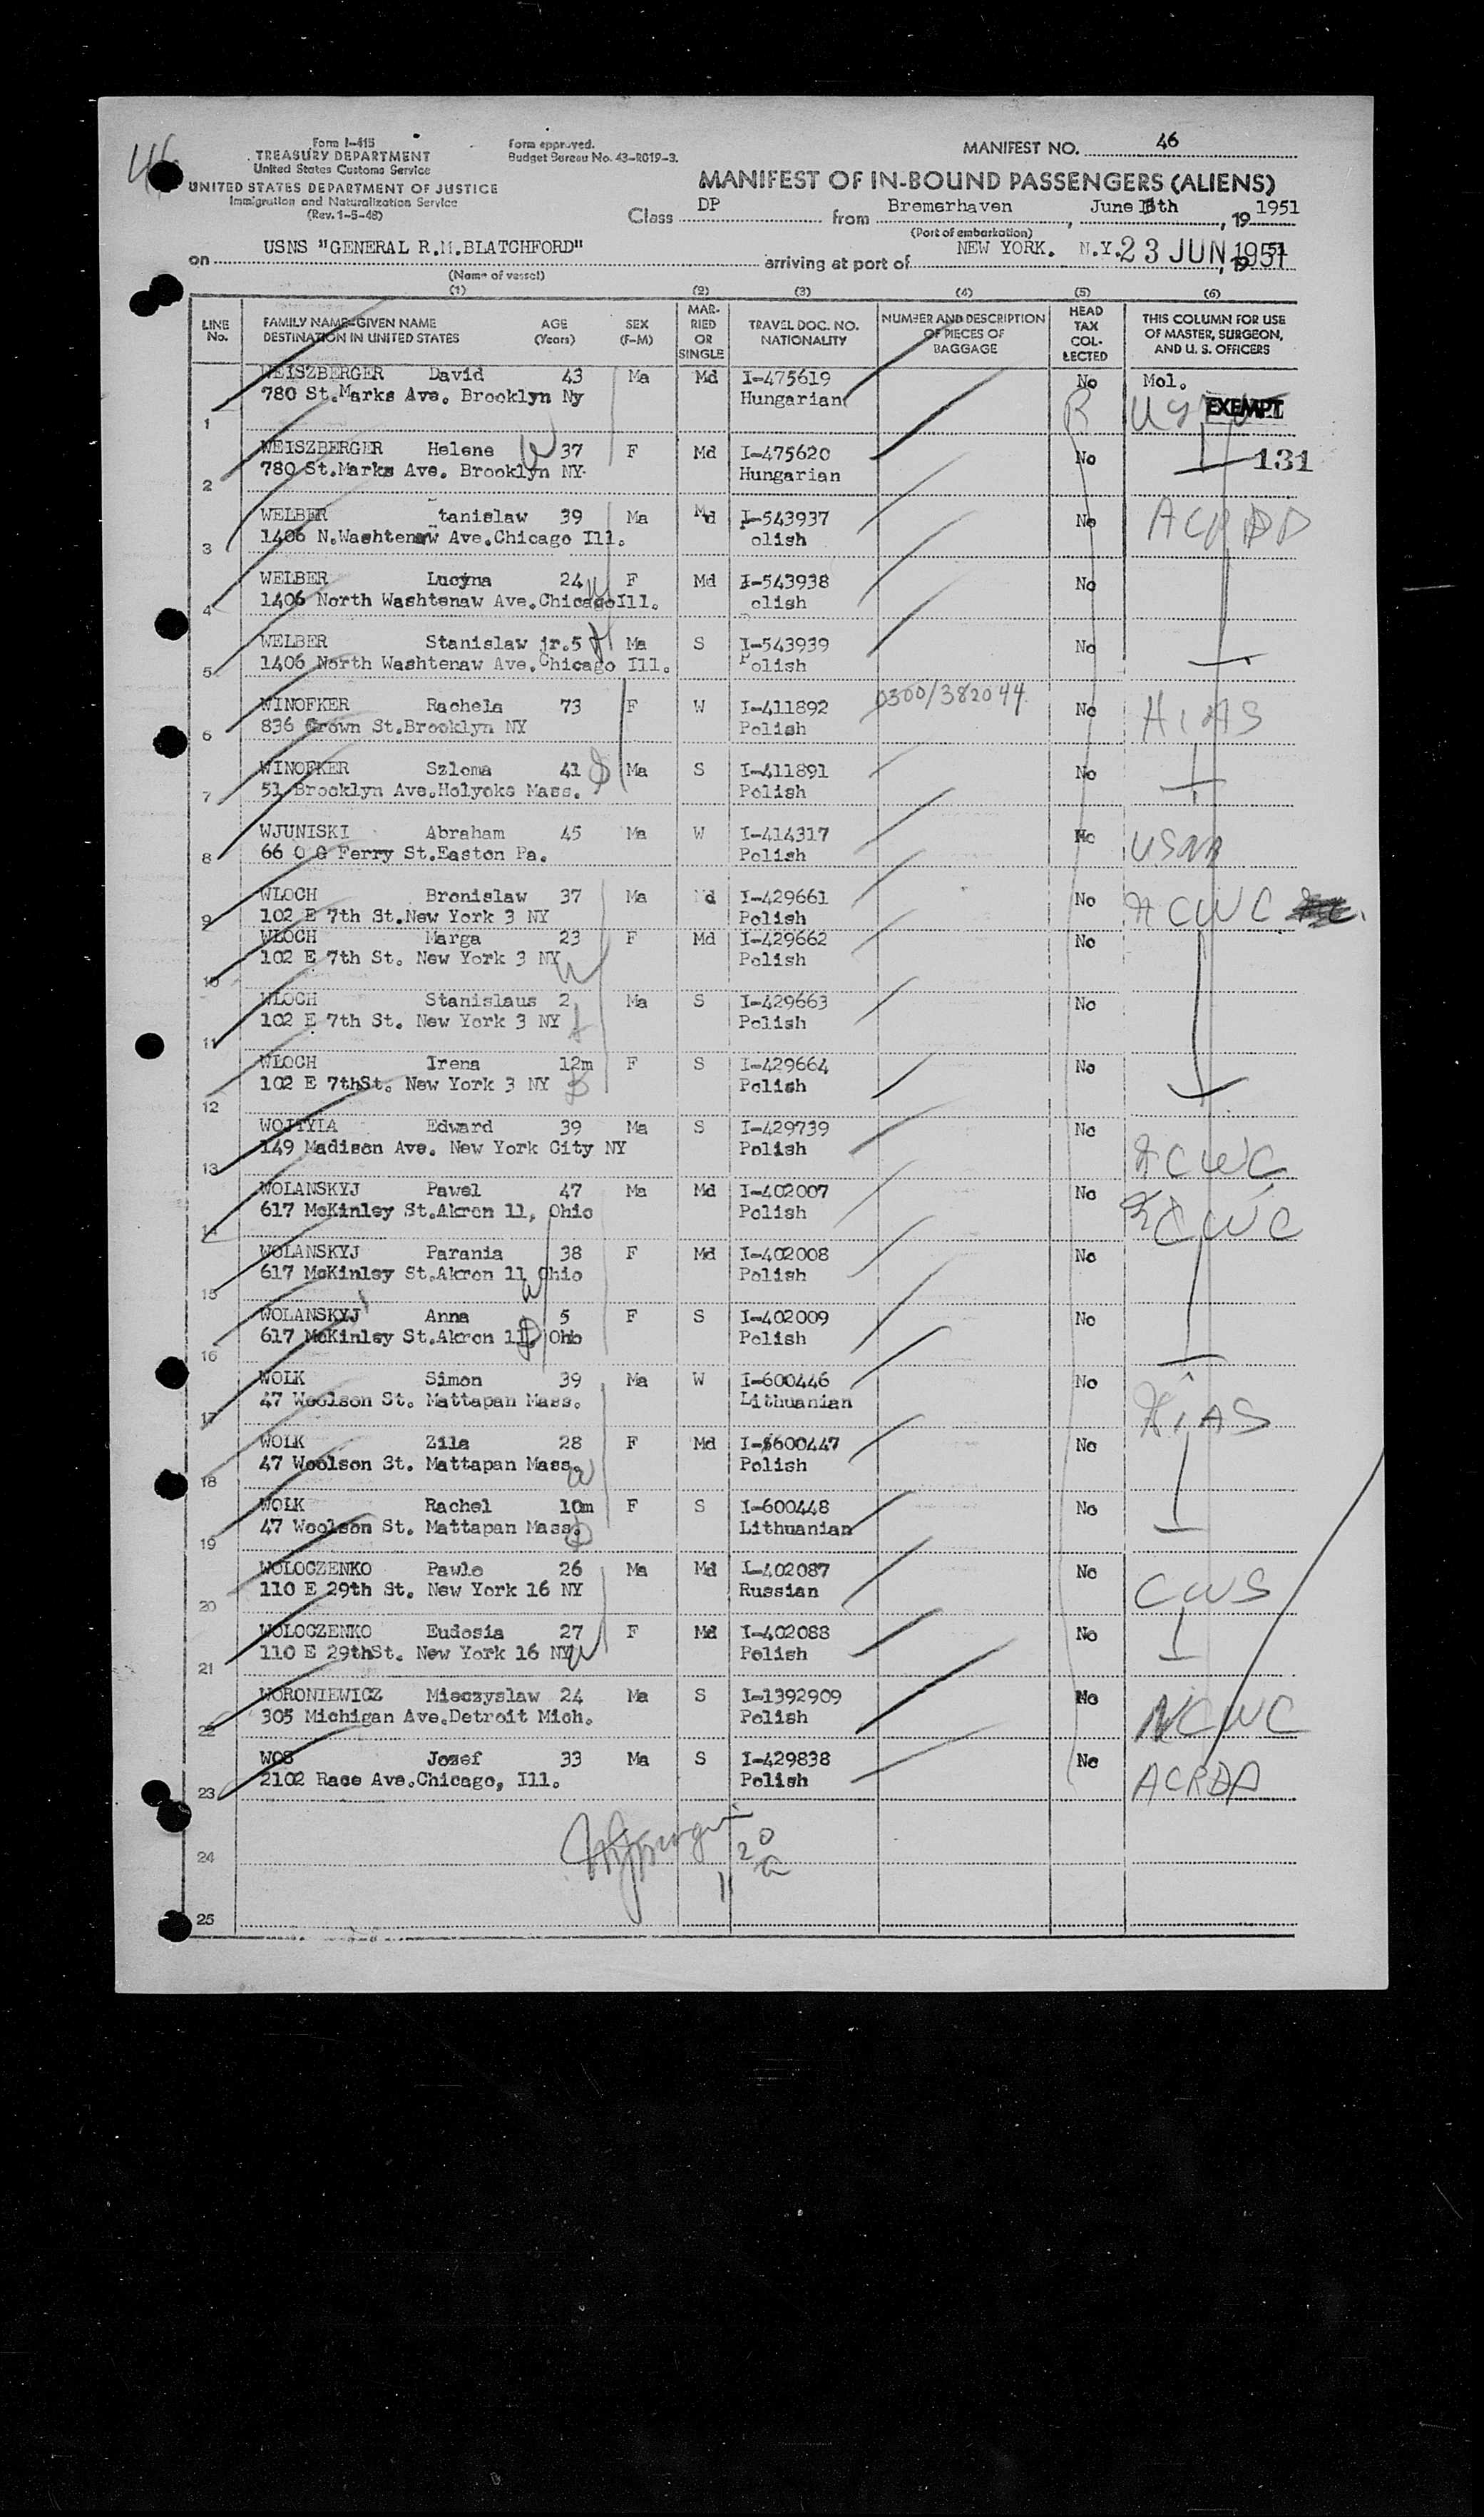 46
Form I-415
TREASURY DEPARTMENT
United States Customs Service
UNITED STATES DEPARTMENT OF JUSTICE
Immigration and Naturalization Service
(Rev. 1-5-48)
Form approved.
Budget Bureau No. 43-R019-3.
MANIFEST NO. 46
MANIFEST OF IN-BOUND PASSENGERS (ALIENS)
Class DP from Bremerhaven, June th, 19 1951
(Port of embarkation)
on USNS "GENERAL R.M.BLATCHFORD" arriving at port of NEW YORK. N.Y. 23 JUN 1951
(Name of vessel)
(1) (2) (3) (4) (5) (6)
LINE No. FAMILY NAME—GIVEN NAME DESTINATION IN UNITED STATES AGE (Years) SEX (F-M) MARRIED OR SINGLE TRAVEL DOC. NO. NATIONALITY NUMBER AND DESCRIPTION OF PIECES OF BAGGAGE HEAD TAX COLLECTED THIS COLUMN FOR USE OF MASTER, SURGEON, AND U. S. OFFICERS
WEISZBERGER David 43 Ma Md I-475619 No Mol.
780 St.Marks Ave. Brooklyn Ny Hungarian EXEMPT
1
WEISZBERGER Helene 37 F Md I-475620 No 131
780 St.Marks Ave. Brooklyn NY Hungarian
2
WELBER tanislaw 39 Ma Md I-543937 No
1406 N.Washtenaw Ave.Chicago Ill. olish
3
WELBER Lucyna 24 F Md I-543938 No
1406 North Washtenaw Ave.Chicago Ill. olish
4
WELBER Stanislaw jr.5 Ma S I-543939 No
1406 North Washtenaw Ave.Chicago Ill. Polish
5
WINOFKER Rachela 73 F W I-411892 0300/382044 No HIAS
836 Crown St.Brooklyn NY Polish
6
WINOFKER Szloma 41 Ma S I-411891 No
51 Brooklyn Ave.Holyoke Mass. Polish
7
WJUNISKI Abraham 45 Ma W I-414317 No USNA
66 O G Ferry St.Easton Pa. Polish
8
WLOCH Bronislaw 37 Ma d I-429661 No NCWC
102 E 7th St.New York 3 NY Polish
9
WLOCH Marga 23 F Md I-429662 No
102 E 7th St. New York 3 NY Polish
10
WLOCH Stanislaus 2 Ma S I-429663 No
102 E 7th St. New York 3 NY Polish
11
WLOCH Irena 12m F S I-429664 No
102 E 7thSt. New York 3 NY Polish
12
WOJTYIA Edward 39 Ma S I-429739 No
149 Madison Ave. New York City NY Polish NCWC
13
WOLANSKYJ Pawel 47 Ma Md I-402007 No
617 McKinley St.Akron 11, Ohio Polish NCWC
14
WOLANSKYJ Parania 38 F Md I-402008 No
617 McKinley St.Akron 11 Ohio Polish
15
WOLANSKYJ Anna 5 F S I-402009 No
617 McKinley St.Akron 11, Ohio Polish
16
WOLK Simon 39 Ma W I-600446 No
47 Woolson St. Mattapan Mass. Lithuanian HIAS
17
WOLK Zila 28 F Md I-600447 No
47 Woolson St. Mattapan Mass. Polish
18
WOLK Rachel 10m F S I-600448 No
47 Woolson St. Mattapan Mass. Lithuanian
19
WOLOCZENKO Pawlo 26 Ma Md I-402087 No
110 E 29th St. New York 16 NY Russian CWS
20
WOLOCZENKO Eudosia 27 F Md I-402088 No
110 E 29thSt. New York 16 NY Polish
21
WORONIEWICZ Mieczyslaw 24 Ma S I-1392909 No
305 Michigan Ave.Detroit Mich. Polish NCWC
22
WOS Jozef 33 Ma S I-429838 No
2102 Race Ave.Chicago, Ill. Polish ACRDP
23
24
25